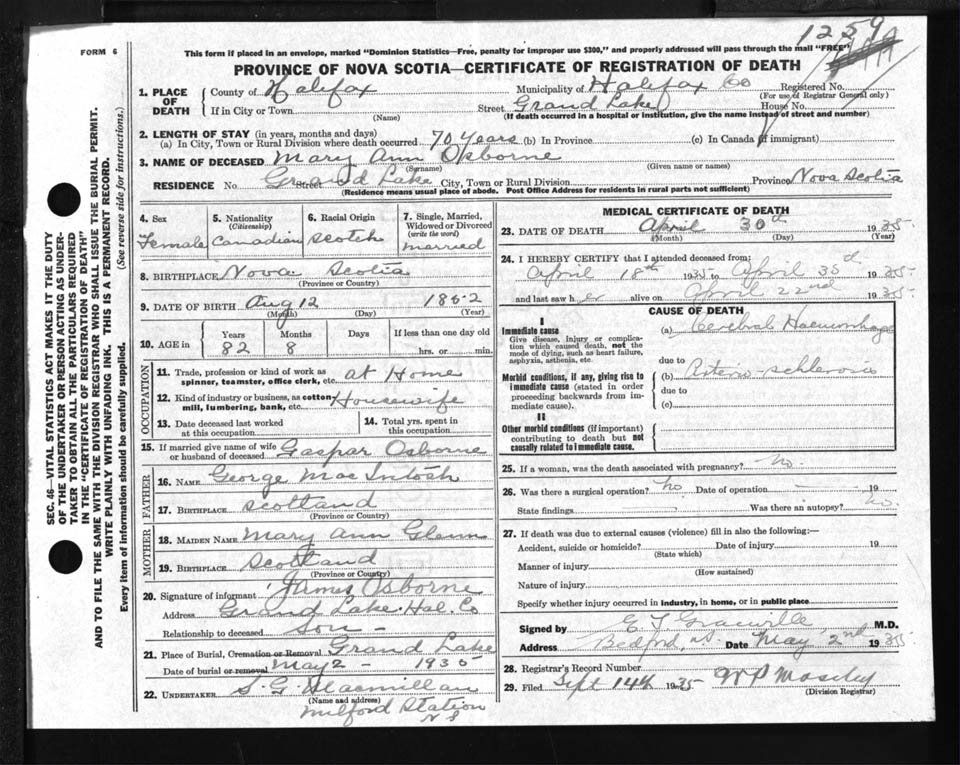 1259
FORM 6
This form if placed in an envelope, marked "Dominion Statistics—Free, penalty for improper use $300," and properly addressed will pass through the mail "FREE"
PROVINCE OF NOVA SCOTIA—CERTIFICATE OF REGISTRATION OF DEATH
1. PLACE OF DEATH County of Halifax Municipality of Halifax Co Registered No.
(For use of Registrar General only)
If in City or Town Street Grand Lake House No.
(Name) (If death occurred in a hospital or institution, give the name instead of street and number)
2. LENGTH OF STAY (in years, months and days)
(a) In City, Town or Rural Division where death occurred 70 years (b) In Province (c) In Canada (if immigrant)
3. NAME OF DECEASED Mary Ann Osborne
(Surname) (Given name or names)
RESIDENCE No Street Grand Lake City, Town or Rural Division Province Nova Scotia
(Residence means usual place of abode. Post Office Address for residents in rural parts not sufficient)
4. Sex Female
5. Nationality (Citizenship) Canadian
6. Racial Origin Scotch
7. Single, Married, Widowed or Divorced (write the word) married
8. BIRTHPLACE Nova Scotia
(Province or Country)
9. DATE OF BIRTH Aug 12 1852
(Month) (Day) (Year)
10. AGE in Years 82 Months 8 Days If less than one day old hrs. or min.
OCCUPATION
11. Trade, profession or kind of work as spinner, teamster, office clerk, etc. at Home
12. Kind of industry or business, as cotton mill, lumbering, bank, etc. Housewife
13. Date deceased last worked at this occupation
14. Total yrs. spent in this occupation
15. If married give name of wife or husband of deceased Gaspar Osborne
FATHER
16. NAME George MacIntosh
17. BIRTHPLACE Scotland
(Province or Country)
MOTHER
18. MAIDEN NAME Mary Ann Glenn
19. BIRTHPLACE Scotland
(Province or Country)
20. Signature of informant James Osborne
Address Grand Lake. Hal. Co
Relationship to deceased Son -
21. Place of Burial, Cremation or Removal Grand Lake
Date of burial or removal May 2 - 1935
22. UNDERTAKER S. G. Macmillan
(Name and address)
Milford Station
N S
MEDICAL CERTIFICATE OF DEATH
23. DATE OF DEATH April 30th 1935
(Month) (Day) (Year)
24. I HEREBY CERTIFY that I attended deceased from:
April 18th 1935 to April 30th 1935
and last saw her alive on April 22nd 1935
CAUSE OF DEATH
I
Immediate cause
Give disease, injury or complication which caused death, not the mode of dying, such as heart failure, asphyxia, asthenia, etc
(a) Cerebral Haemorrhage
due to
Morbid conditions, if any, giving rise to immediate cause (stated in order proceeding backwards from immediate cause).
(b) Arterio-schlerosis
due to
(c)
II
Other morbid conditions (if important) contributing to death but not causally related to immediate cause.
25. If a woman, was the death associated with pregnancy? no.
26. Was there a surgical operation? no Date of operation 19
State findings Was there an autopsy? no
27. If death was due to external causes (violence) fill in also the following:—
Accident, suicide or homicide? Date of injury 19
(State which)
Manner of injury
(How sustained)
Nature of injury
Specify whether injury occurred in industry, in home, or in public place
Signed by E T Granville M.D.
Address Bedford, N.S. Date May 2nd 1935
28. Registrar's Record Number
29. Filed Sept 14th 1935 W P Moseley
(Division Registrar)
SEC. 46—VITAL STATISTICS ACT MAKES IT THE DUTY
OF THE UNDERTAKER OR PERSON ACTING AS UNDER-
TAKER TO OBTAIN ALL THE PARTICULARS REQUIRED
IN THE "CERTIFICATE OF REGISTRATION OF DEATH"
AND TO FILE THE SAME WITH THE DIVISION REGISTRAR WHO SHALL ISSUE THE BURIAL PERMIT.
WRITE PLAINLY WITH UNFADING INK. THIS IS A PERMANENT RECORD.
Every item of information should be carefully supplied. (See reverse side for instructions.)